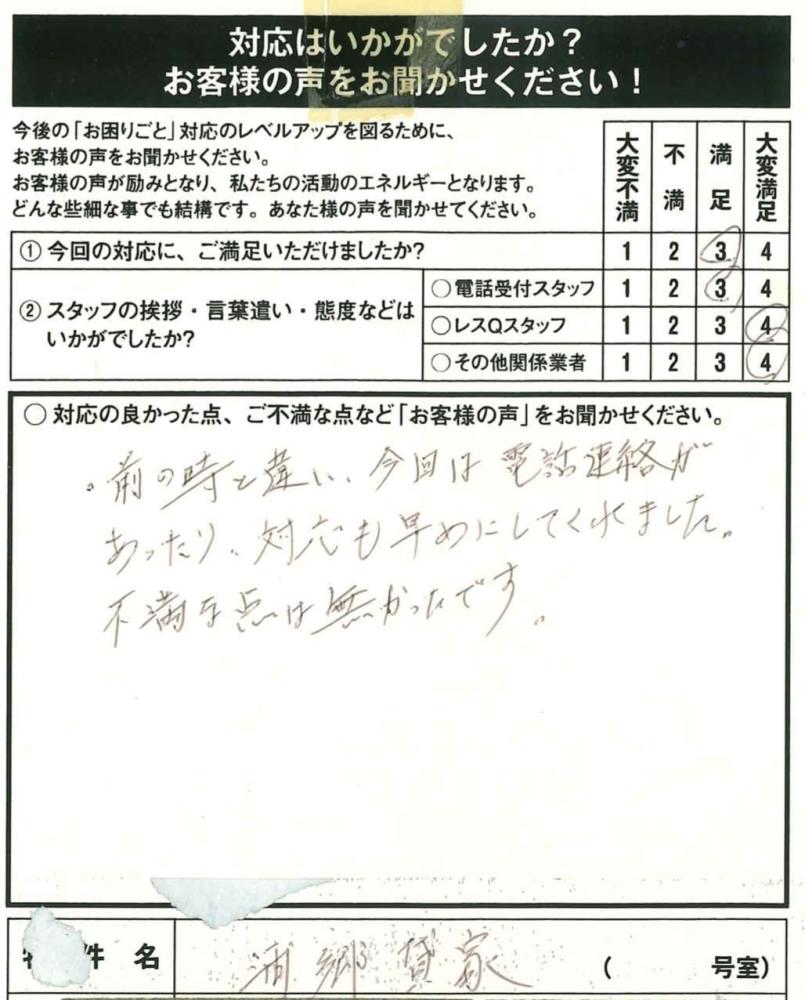 対応はいかがでしたか?
お客様の声をお聞かせください!
今後の「お困りごと」対応のレベルアップを図るために、
お客様の声をお聞かせください。
お客様の声が励みとなり、私たちの活動のエネルギーとなります。
どんな些細な事でも結構です。あなた様の声を聞かせてください。
大変不満 不満 満足 大変満足
① 今回の対応に、ご満足いただけましたか? 1 2 3 4
② スタッフの挨拶・言葉遣い・態度などは
いかがでしたか?
○電話受付スタッフ 1 2 3 4
○レスQスタッフ 1 2 3 4
○その他関係業者 1 2 3 4
○ 対応の良かった点、ご不満な点など「お客様の声」をお聞かせください。
。前の時と違い、今回は電話連絡が
あったり、対応も早めにしてくれました。
不満な点は無かったです。
件名 浦郷貸家 ( 号室)